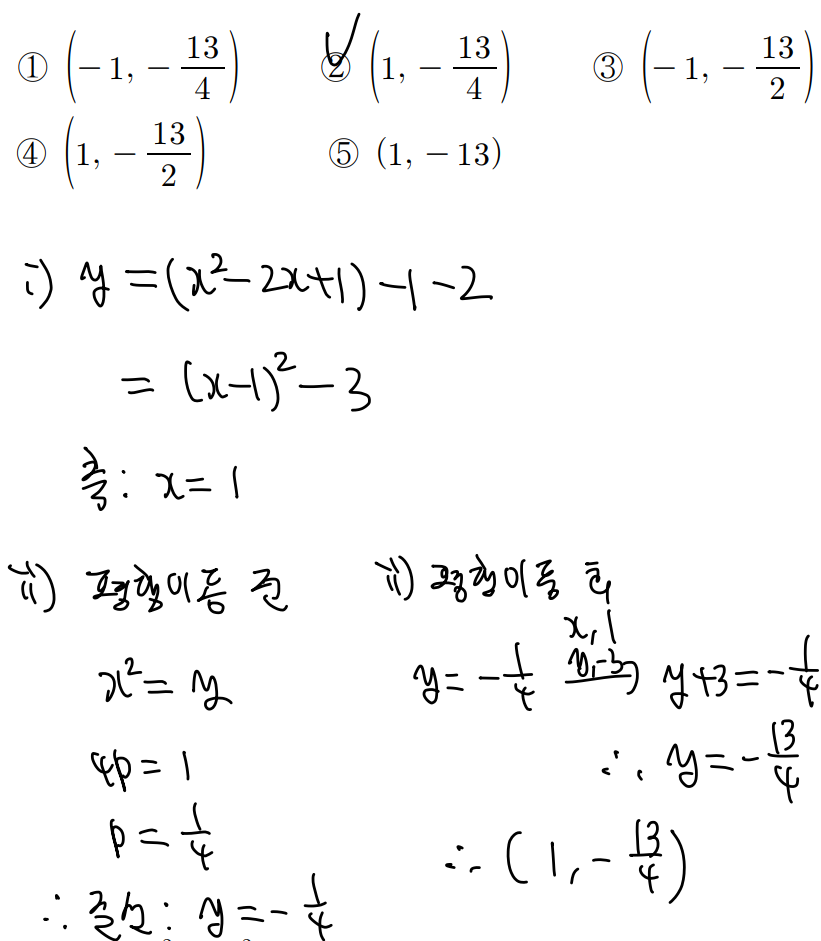 ① (−1, −13/4) ② (1, −13/4) ③ (−1, −13/2)
④ (1, −13/2) ⑤ (1, −13)
i) y = (x² − 2x + 1) − 1 − 2
= (x−1)² − 3
축: x = 1
ii) 평행이동 전
x² = y
4p = 1
p = 1/4
∴ 준선: y = −1/4
ii) 평행이동 후
x, 1
y, −3
y = −1/4 → y+3 = −1/4
∴ y = −13/4
∴ (1, −13/4)